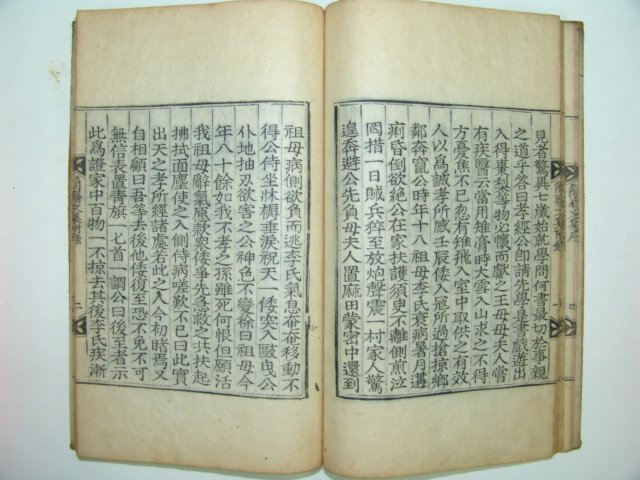 見者驚異七歲始就學問何書最切於事親
之道乎答曰孝經公卽請先學是書戱遊出
入得棗梨等物必懷而獻之王母母夫人嘗
有疾醫云當用雉膏時大雪入山求之不得
方憂焦不已忽有雉飛入室中取供之有效
人以爲誠孝所感壬辰倭入寇所過搶掠鄉
鄰奔竄公時年十八祖母李氏衰病暑月遘
痢昏倒欲絶公在家扶護須臾不離側煎泣
罔措一日賊兵猝至放炮聲震一村家人驚
遑奔避公先負母夫人置麻田蒙密中還到
祖母病側欲負而逃李氏氣息奄奄移動不
得公侍坐牀褥垂淚祝天一倭突入敺曳公
仆地抽刃欲害之公神色不變徐曰祖母今
年八十餘如我不孝之孫雖死何恨但願活
我祖母辭氣愿款衆倭爭先
扶起
拂拭面塵使之入側侍病嗟歎不已曰此實
出天之孝所經諸處若此之人今初睹焉又
自相顧曰吾等去後他倭復至恐不免不可
無信表置靑旗一匕首一謂公曰後至者示
此爲證家中百物一不掠去其後李氏疾漸